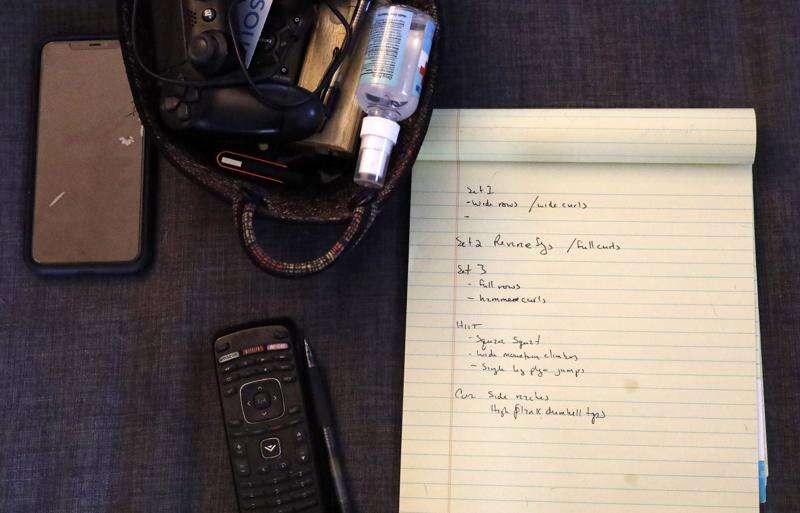 Set 1
-wide rows / wide curls
-
Set 2 Reverse flys / full curls
Set 3
- full rows
- hammer curls
HIIT
- Square Squat
- wide mountain climbers
- Single leg plyo jumps
Core Side reaches
High plank dumbell taps